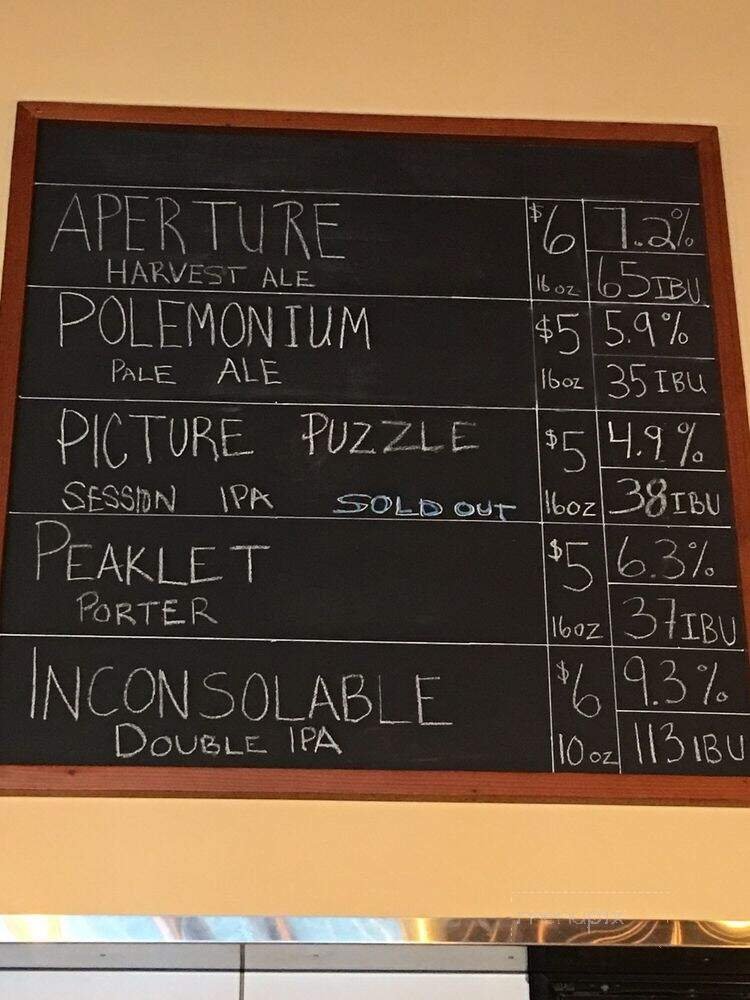 APERTURE $6 7.2%
HARVEST ALE 16oz 65 IBU
POLEMONIUM $5 5.9%
PALE ALE 16oz 35 IBU
PICTURE PUZZLE $5 4.9%
SESSION IPA SOLD OUT 16oz 38 IBU
PEAKLET $5 6.3%
PORTER 16oz 37 IBU
INCONSOLABLE $6 9.3%
DOUBLE IPA 10oz 113 IBU
menupix